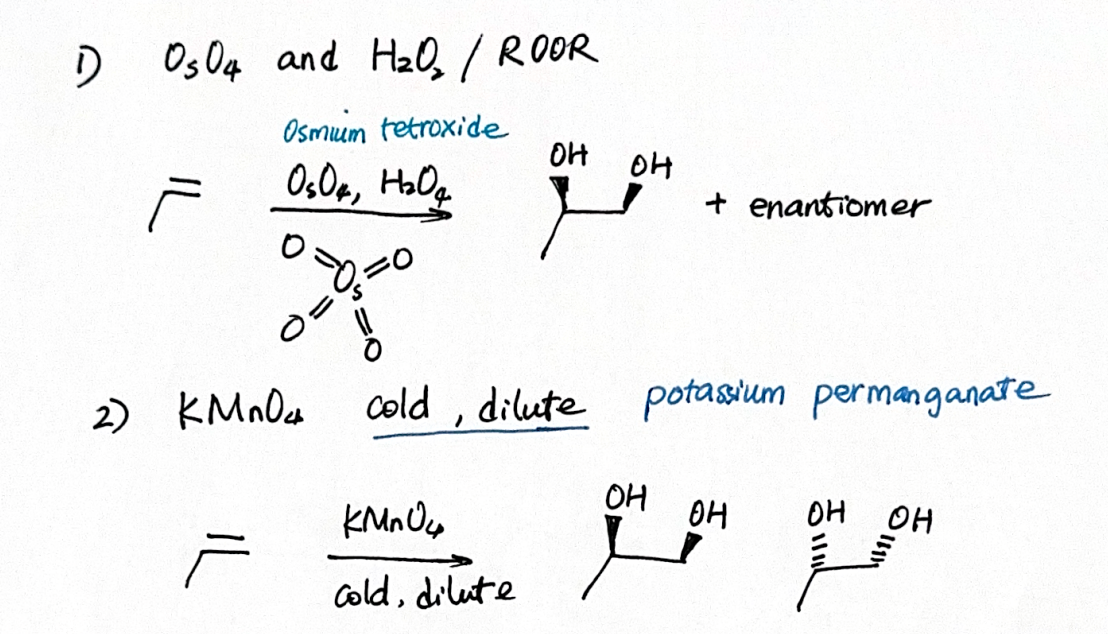 1) OsO4 and H2O2 / ROOR
Osmium tetroxide
OsO4, H2O4
OH OH
+ enantiomer
O O
Os
O O
2) KMnO4 cold, dilute potassium permanganate
KMnO4
cold, dilute
OH OH OH OH